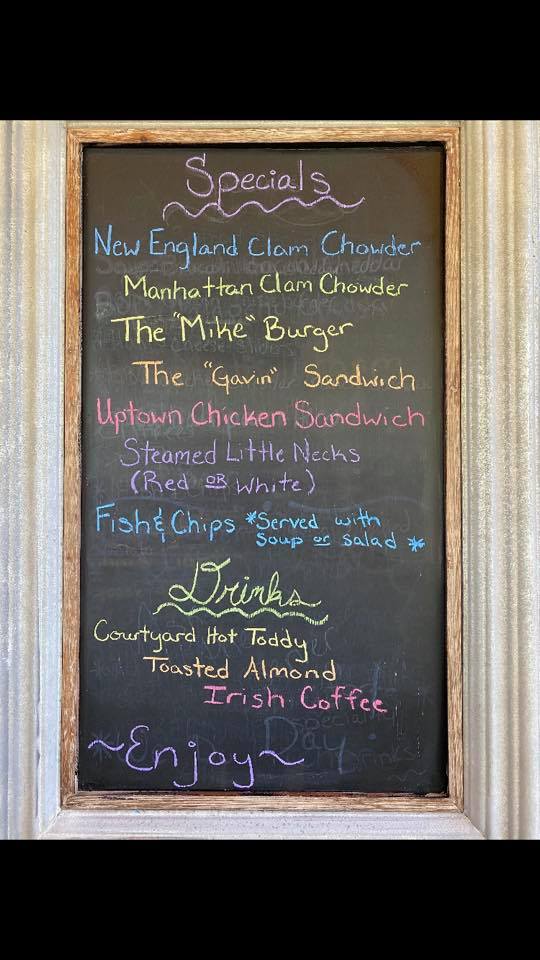 Specials
New England Clam Chowder
Manhattan Clam Chowder
The "Mike" Burger
The "Gavin" Sandwich
Uptown Chicken Sandwich
Steamed Little Necks
(Red or White)
Fish & Chips *Served with
soup or salad *
Drinks
Courtyard Hot Toddy
Toasted Almond
Irish Coffee
~Enjoy~